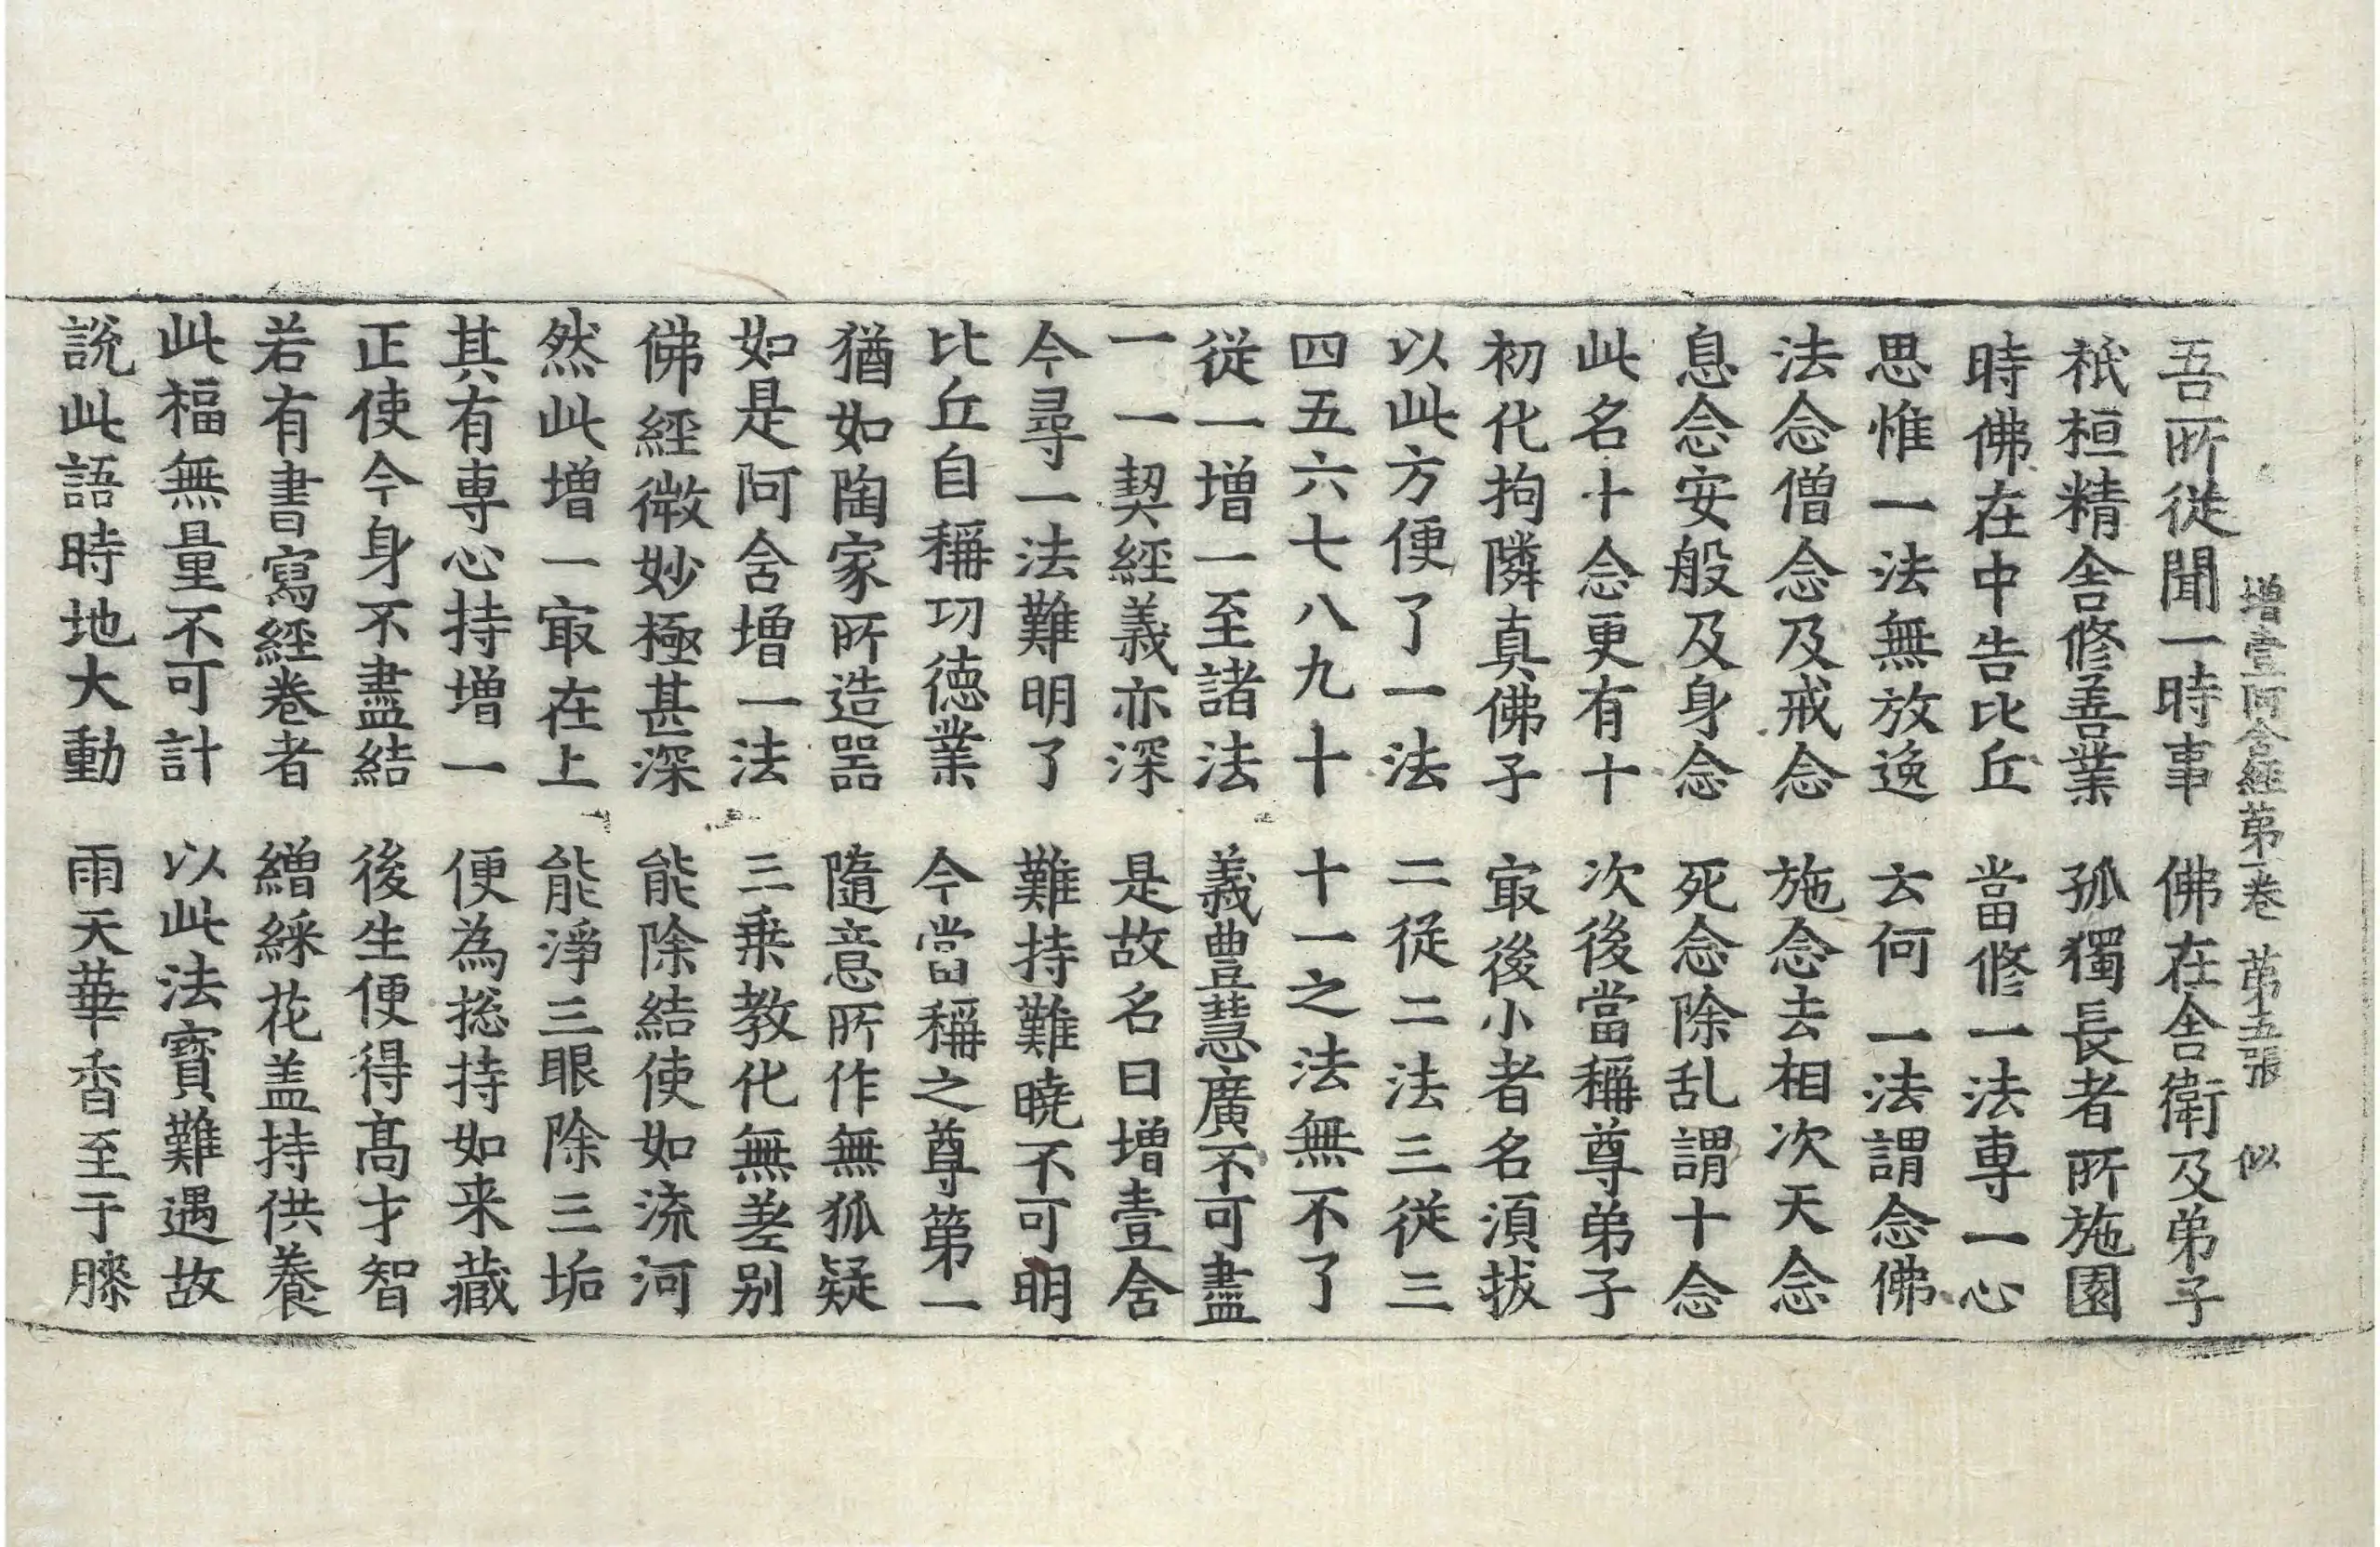 增壹阿含經第一卷 第五張 似
吾所從聞一時事 佛在舍衛及弟子
祇桓精舍修善業 孤獨長者所施園
時佛在中告比丘 當修一法専一心
思惟一法無放逸 云何一法謂念佛
法念僧念及戒念 施念去相次天念
息念安般及身念 死念除乱謂十念
此名十念更有十 次後當稱尊弟子
初化拘隣真佛子 㝡後小者名須拔
以此方便了一法 二從二法三從三
四五六七八九十 十一之法無不了
從一增一至諸法 義豊慧廣不可盡
一一契經義亦深 是故名曰增壹含
今尋一法難明了 難持難曉不可明
比丘自稱功德業 今當稱之尊第一
猶如陶家所造器 隨意所作無狐疑
如是阿含增一法 三乗教化無差别
佛經微妙極甚深 能除結使如流河
然此增一㝡在上 能淨三眼除三垢
其有専心持增一 便為捴持如来藏
正使今身不盡結 後生便得髙才智
若有書寫經卷者 繒綵花盖持供養
此福無量不可計 以此法寶難遇故
說此語時地大動 雨天華香至于膝